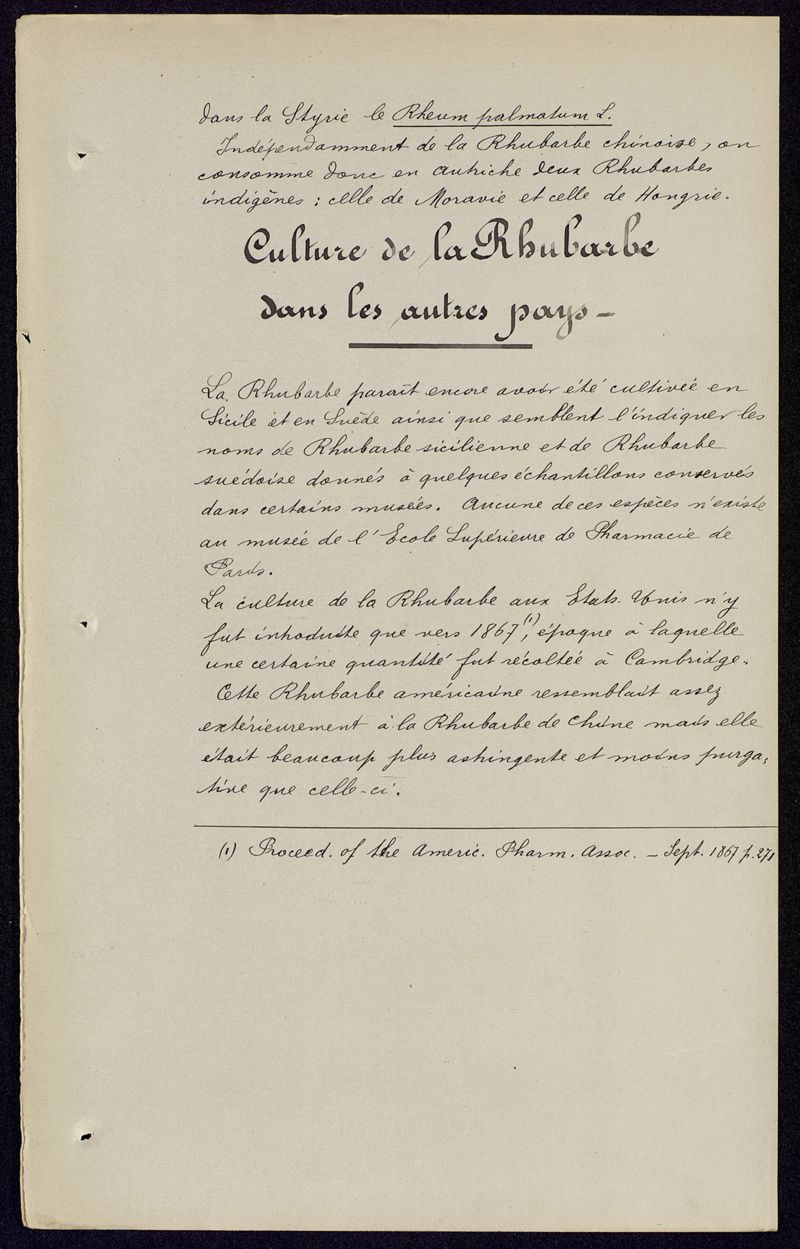 dans la Styrie le Rheum palmatum L.
Indépendamment de la Rhubarbe chinoise, on
consomme donc en Autriche deux Rhubarbes
indigènes : celle de Moravie et celle de Hongrie.
Culture de la Rhubarbe
dans les autres pays –
La Rhubarbe paraît encore avoir été cultivée en
Sicile et en Suède ainsi que semblent l'indiquer les
noms de Rhubarbe sicilienne et de Rhubarbe
suédoise donnés à quelques échantillons conservés
dans certains musées. Aucune de ces espèces n'existe
au musée de l'Ecole Supérieure de Pharmacie de
Paris.
La culture de la Rhubarbe aux Etats-Unis n'y
fut introduite que vers 1867(1), époque à laquelle
une certaine quantité fut récoltée à Cambridge.
Cette Rhubarbe américaine ressemblait assez
extérieurement à la Rhubarbe de Chine mais elle
était beaucoup plus astringente et moins purga-
tive que celle-ci.
(1) Proceed. of the Americ. Pharm. Assoc. – Sept. 1867 p. 271